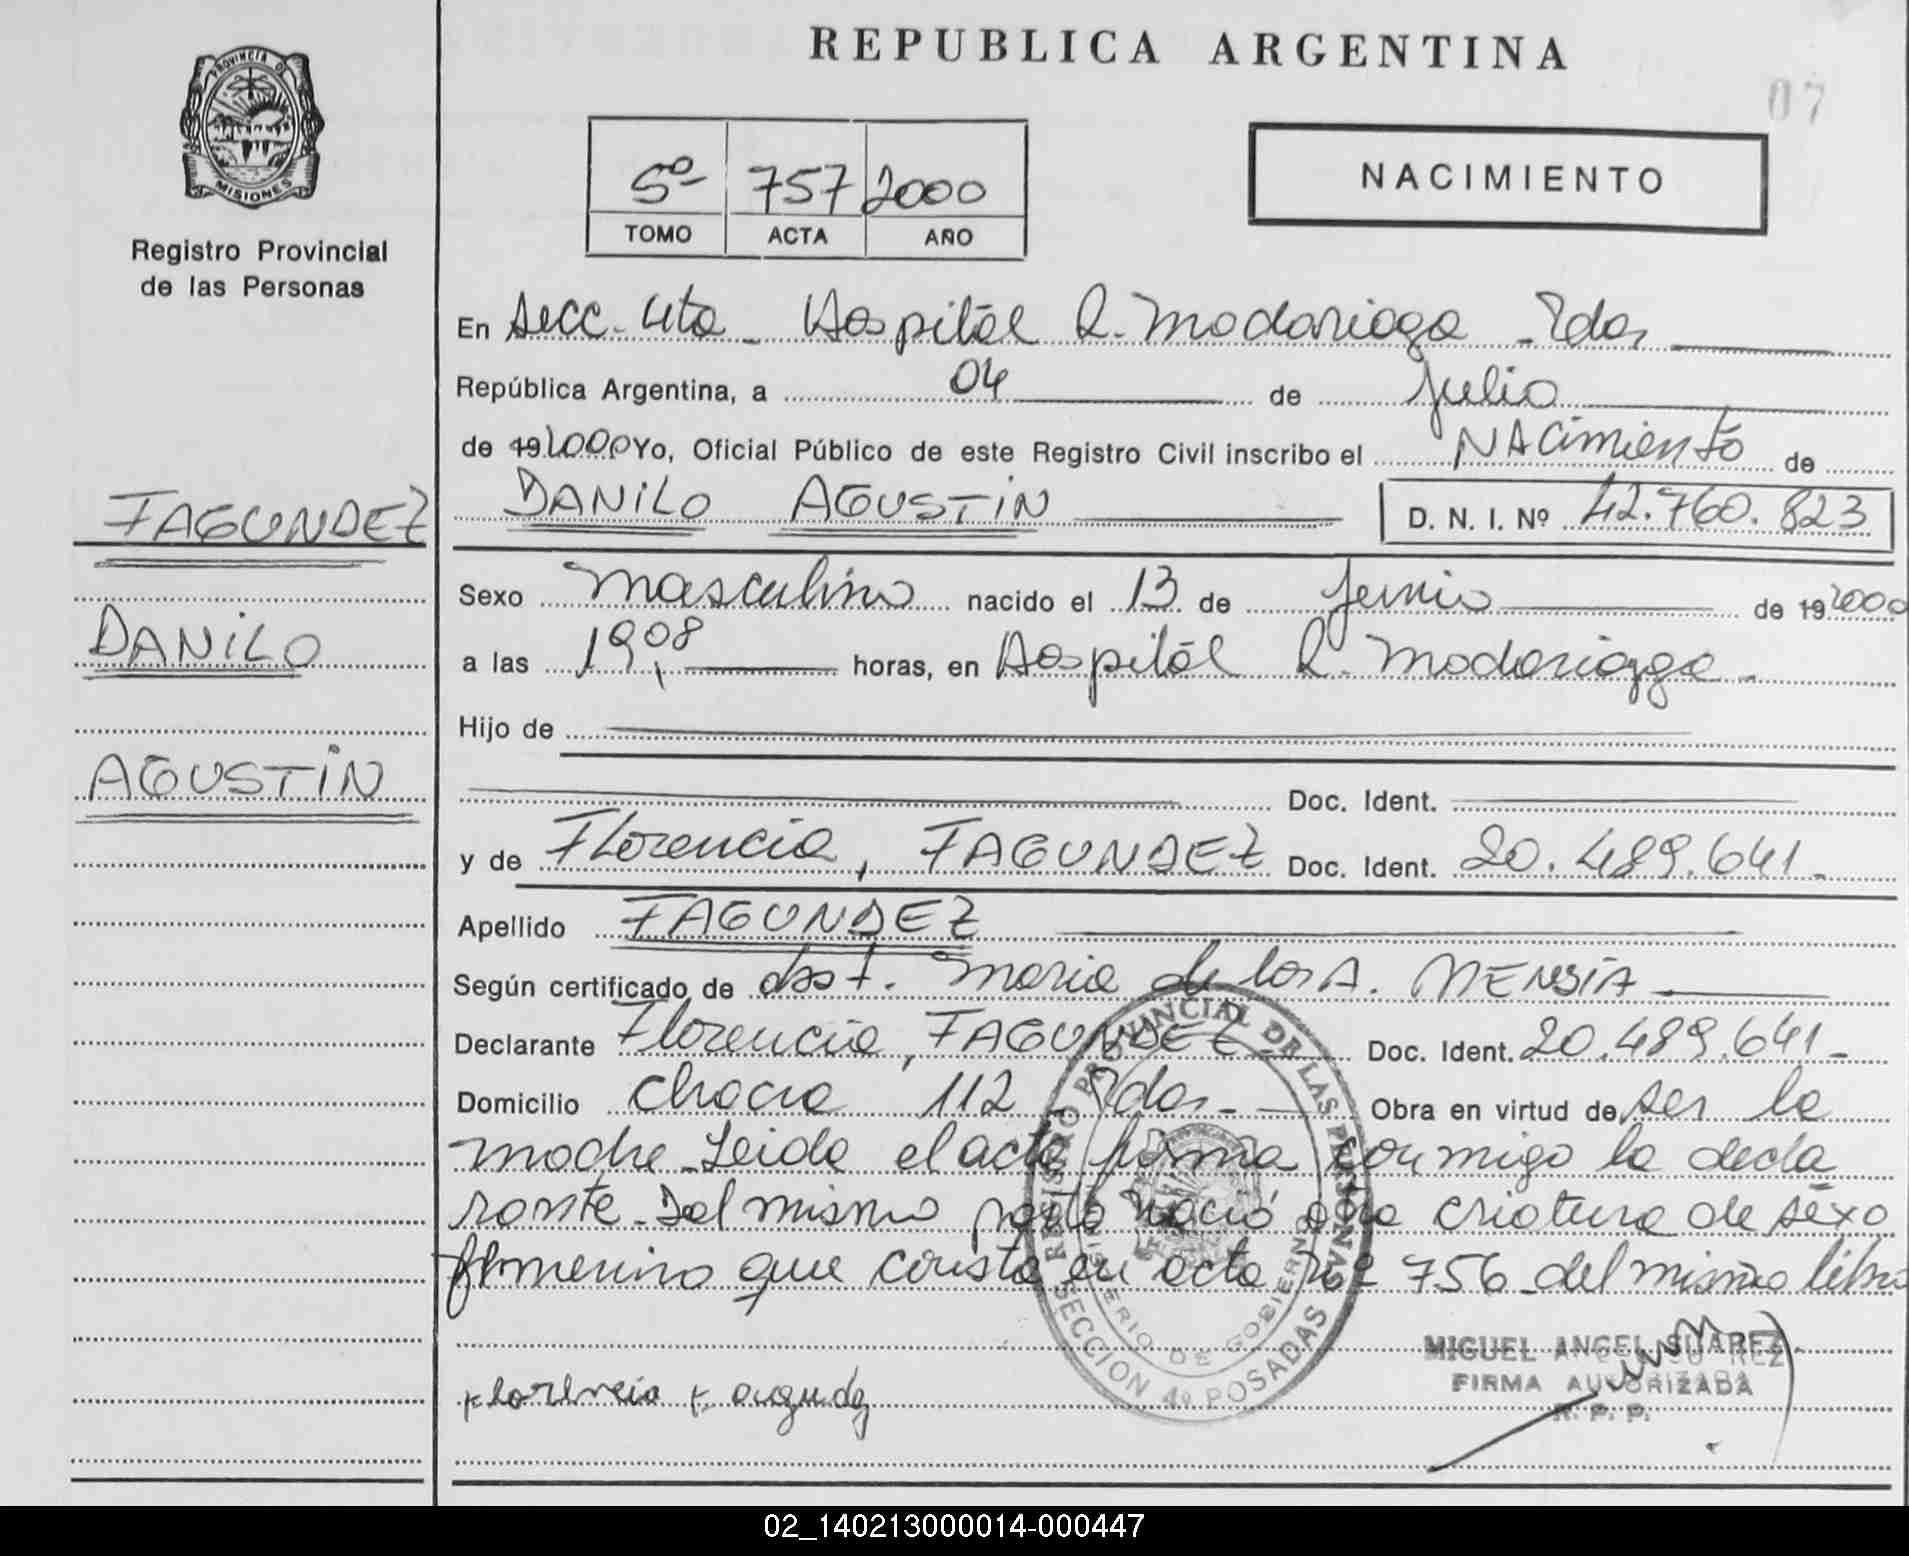 REPUBLICA ARGENTINA
07
PROVINCIA DE
MISIONES
Registro Provincial
de las Personas
5º 757 2000
TOMO ACTA AÑO
NACIMIENTO
En Secc. 4ta - Hospital R. Madariaga - Pdas
República Argentina, a 04 de Julio
de 192000 Yo, Oficial Público de este Registro Civil inscribo el NAcimiento de
DANILO AGUSTIN D. N. I. Nº 42.760.823
FAGUNDEZ
DANILO
AGUSTIN
Sexo masculino nacido el 13 de Junio de 192000
a las 19,08 horas, en Hospital R. Madariaga -
Hijo de
Doc. Ident.
y de Florencia, FAGUNDEZ Doc. Ident. 20.489.641.-
Apellido FAGUNDEZ
Según certificado de Obst. Maria de los A. MENSIA
Declarante Florencia, FAGUNDEZ Doc. Ident. 20.489.641.-
Domicilio Chaco 112 Pdas - Obra en virtud de ser la
madre - Leida el acta firma conmigo la decla
rante - Del mismo parto nació otra criatura de sexo
femenino que consta en acta nº 756 del mismo libro
REGISTRO PROVINCIAL DE LAS PERSONAS
MINISTERIO DE GOBIERNO
SECCION 4º POSADAS
MIGUEL ANGEL SUAREZ
FIRMA AUTORIZADA
R. P. P.
Florencia F. augudez
02_140213000014-000447